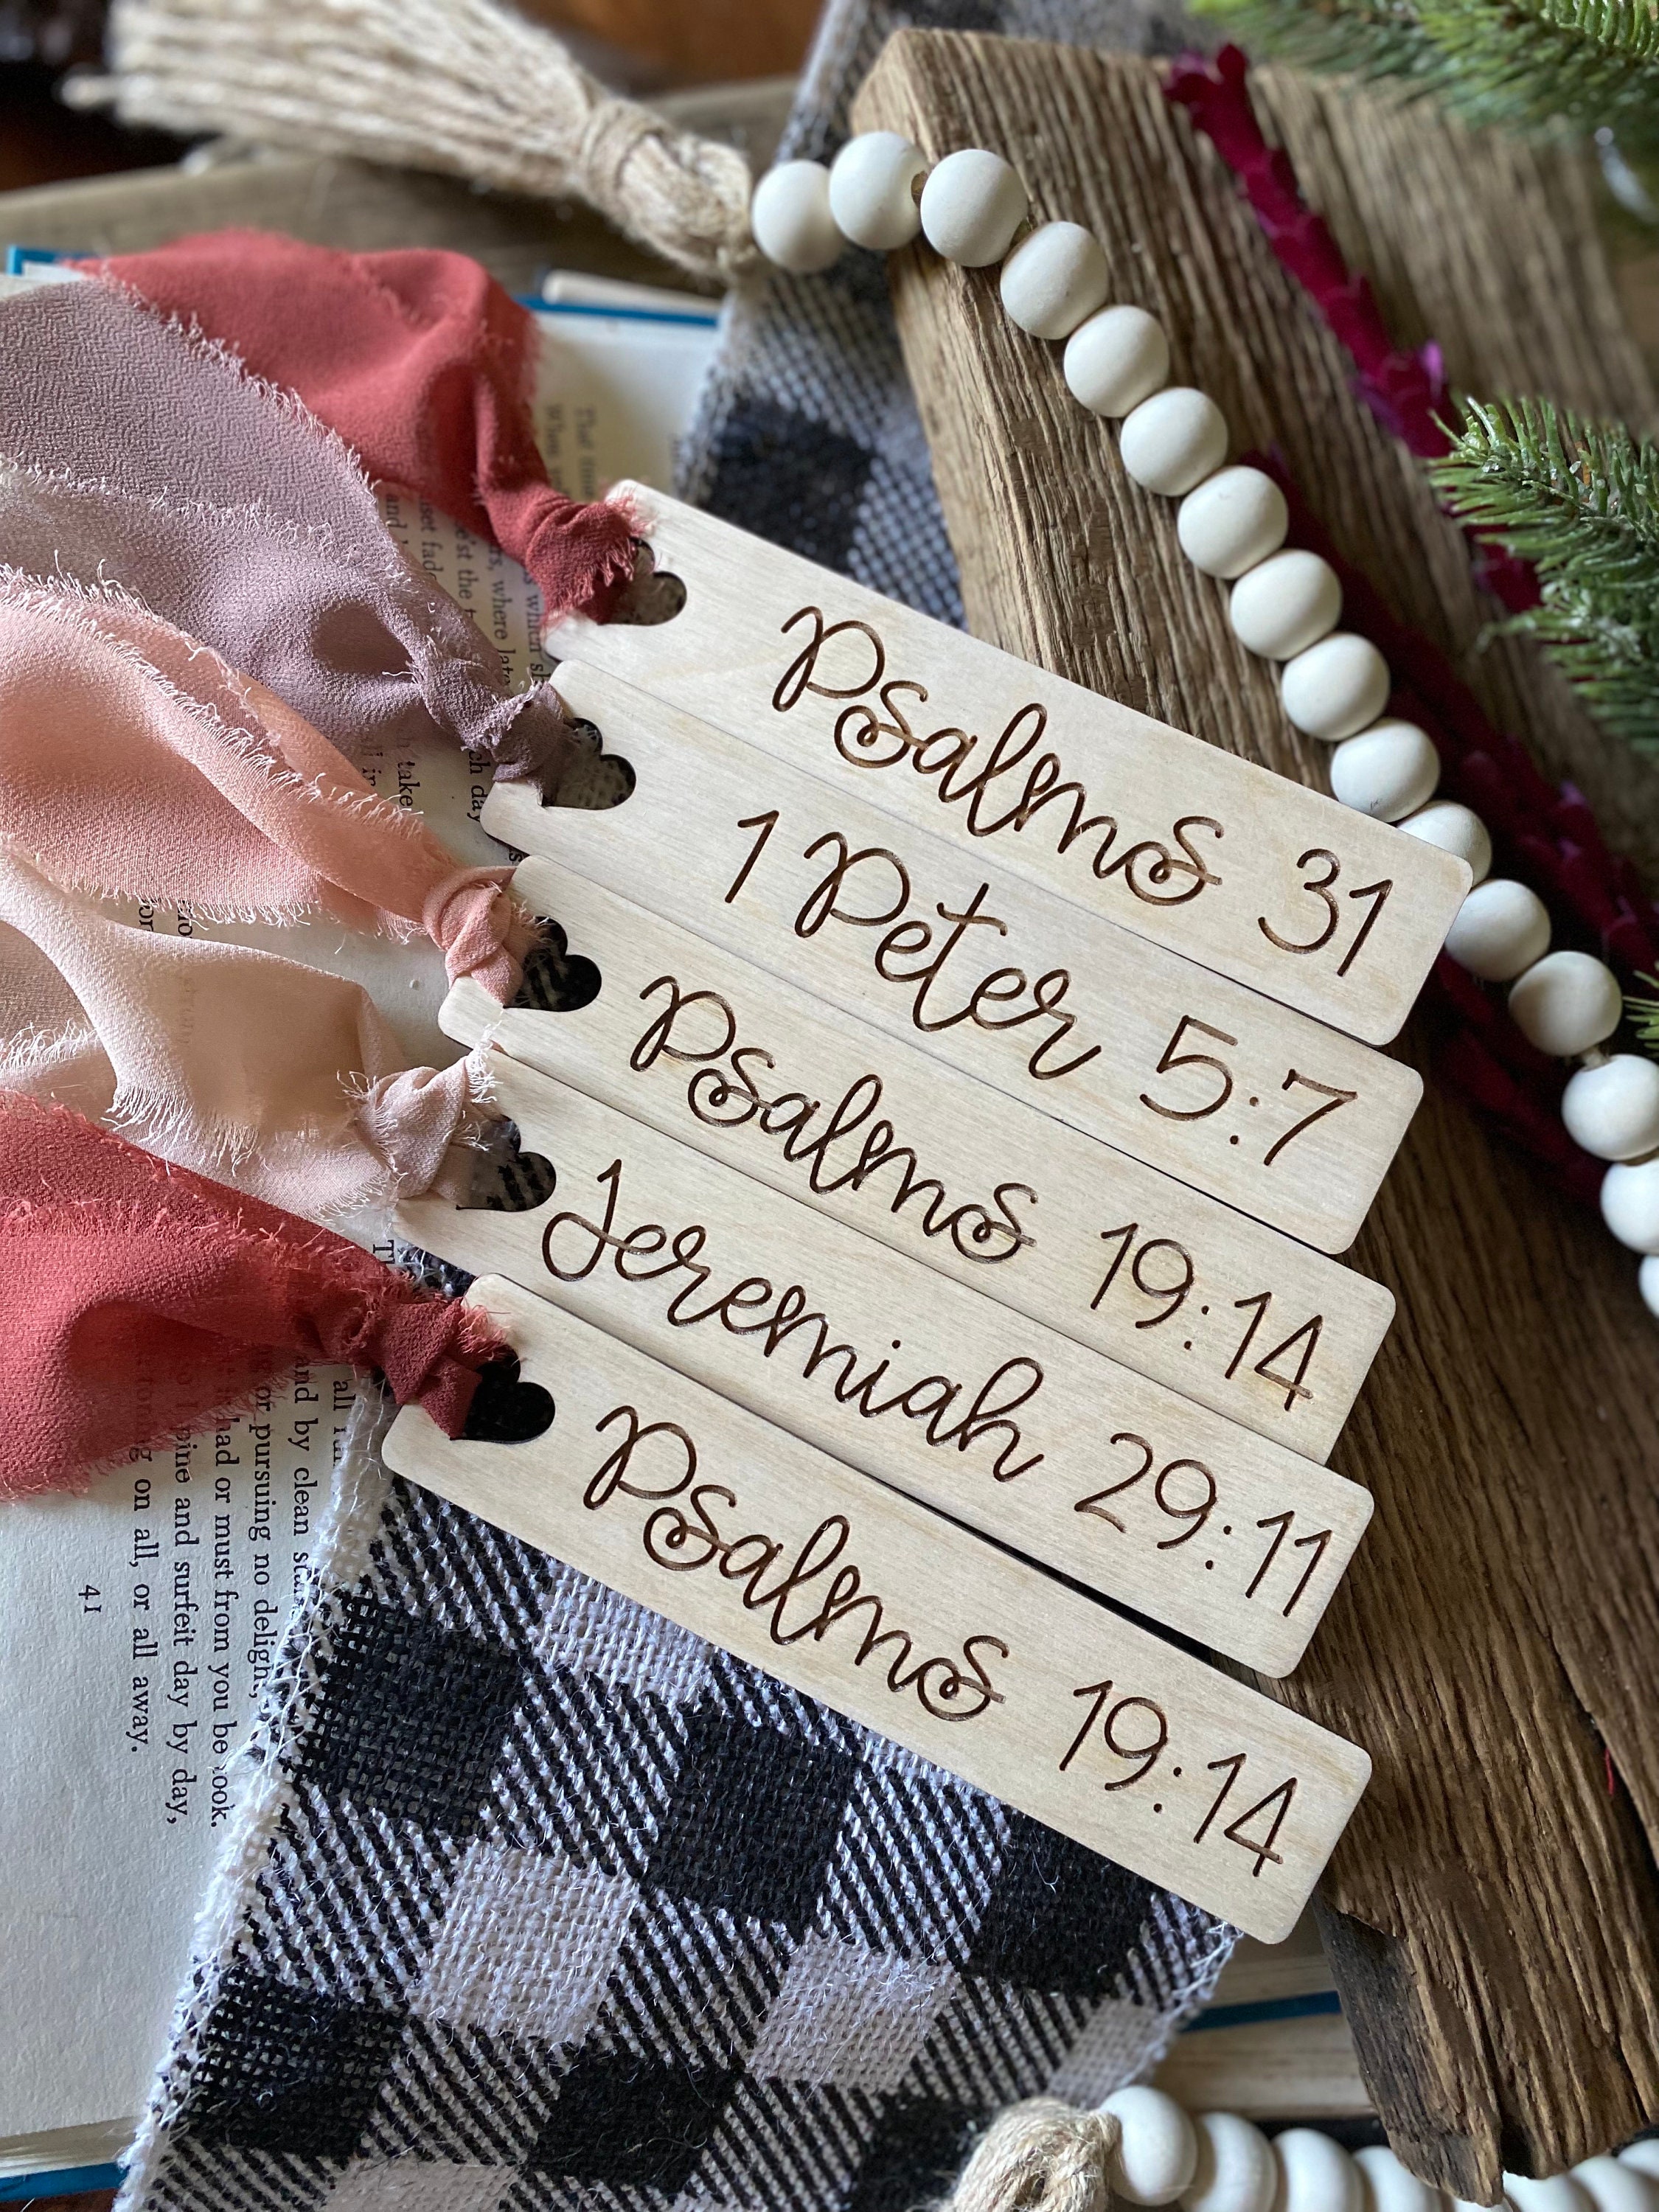 Psalms 31
1 Peter 5:7
Psalms 19:14
Jeremiah 29:11
Psalms 19:14
all
and by clean
or pursuing no delight,
had or must from you be took.
pine and surfeit day by day,
on all, or all away.
41